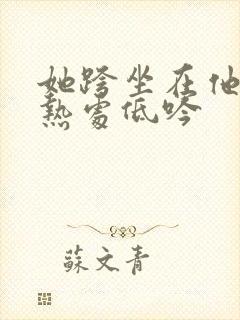 她跨坐在他
熱處低吟
蘇文青